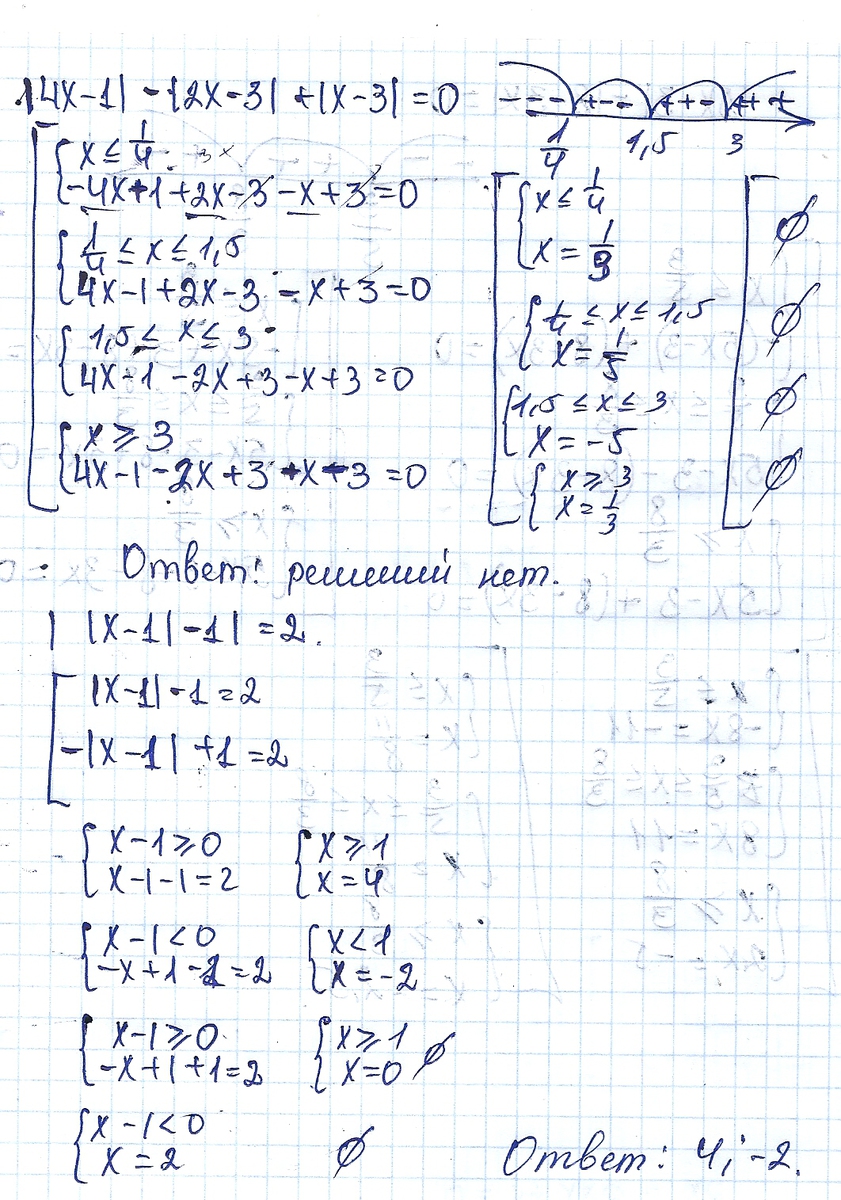 |4x-1| - |2x-3| + |x-3| = 0
- - - + - - + + - + + +
1/4 1,5 3
x ≤ 1/4
-4x+1+2x-3-x+3=0
1/4 ≤ x ≤ 1,5
4x-1+2x-3-x+3=0
1,5 ≤ x ≤ 3
4x-1-2x+3-x+3=0
x ≥ 3
4x-1-2x+3+x-3=0
x ≤ 1/4
x = 1/3
∅
1/4 ≤ x ≤ 1,5
x = 1/5
∅
1,5 ≤ x ≤ 3
x = -5
∅
x ≥ 3
x = 1/3
∅
Ответ: решений нет.
| |x-1| -1| = 2.
|x-1| -1 = 2
-|x-1| +1 = 2
x-1 ≥ 0 x ≥ 1
x-1-1=2 x=4
x-1<0 x<1
-x+1-1=2 x=-2
x-1 ≥ 0 x ≥ 1
-x+1+1=2 x=0 ∅
x-1<0
x=2 ∅
Ответ: 4; -2.